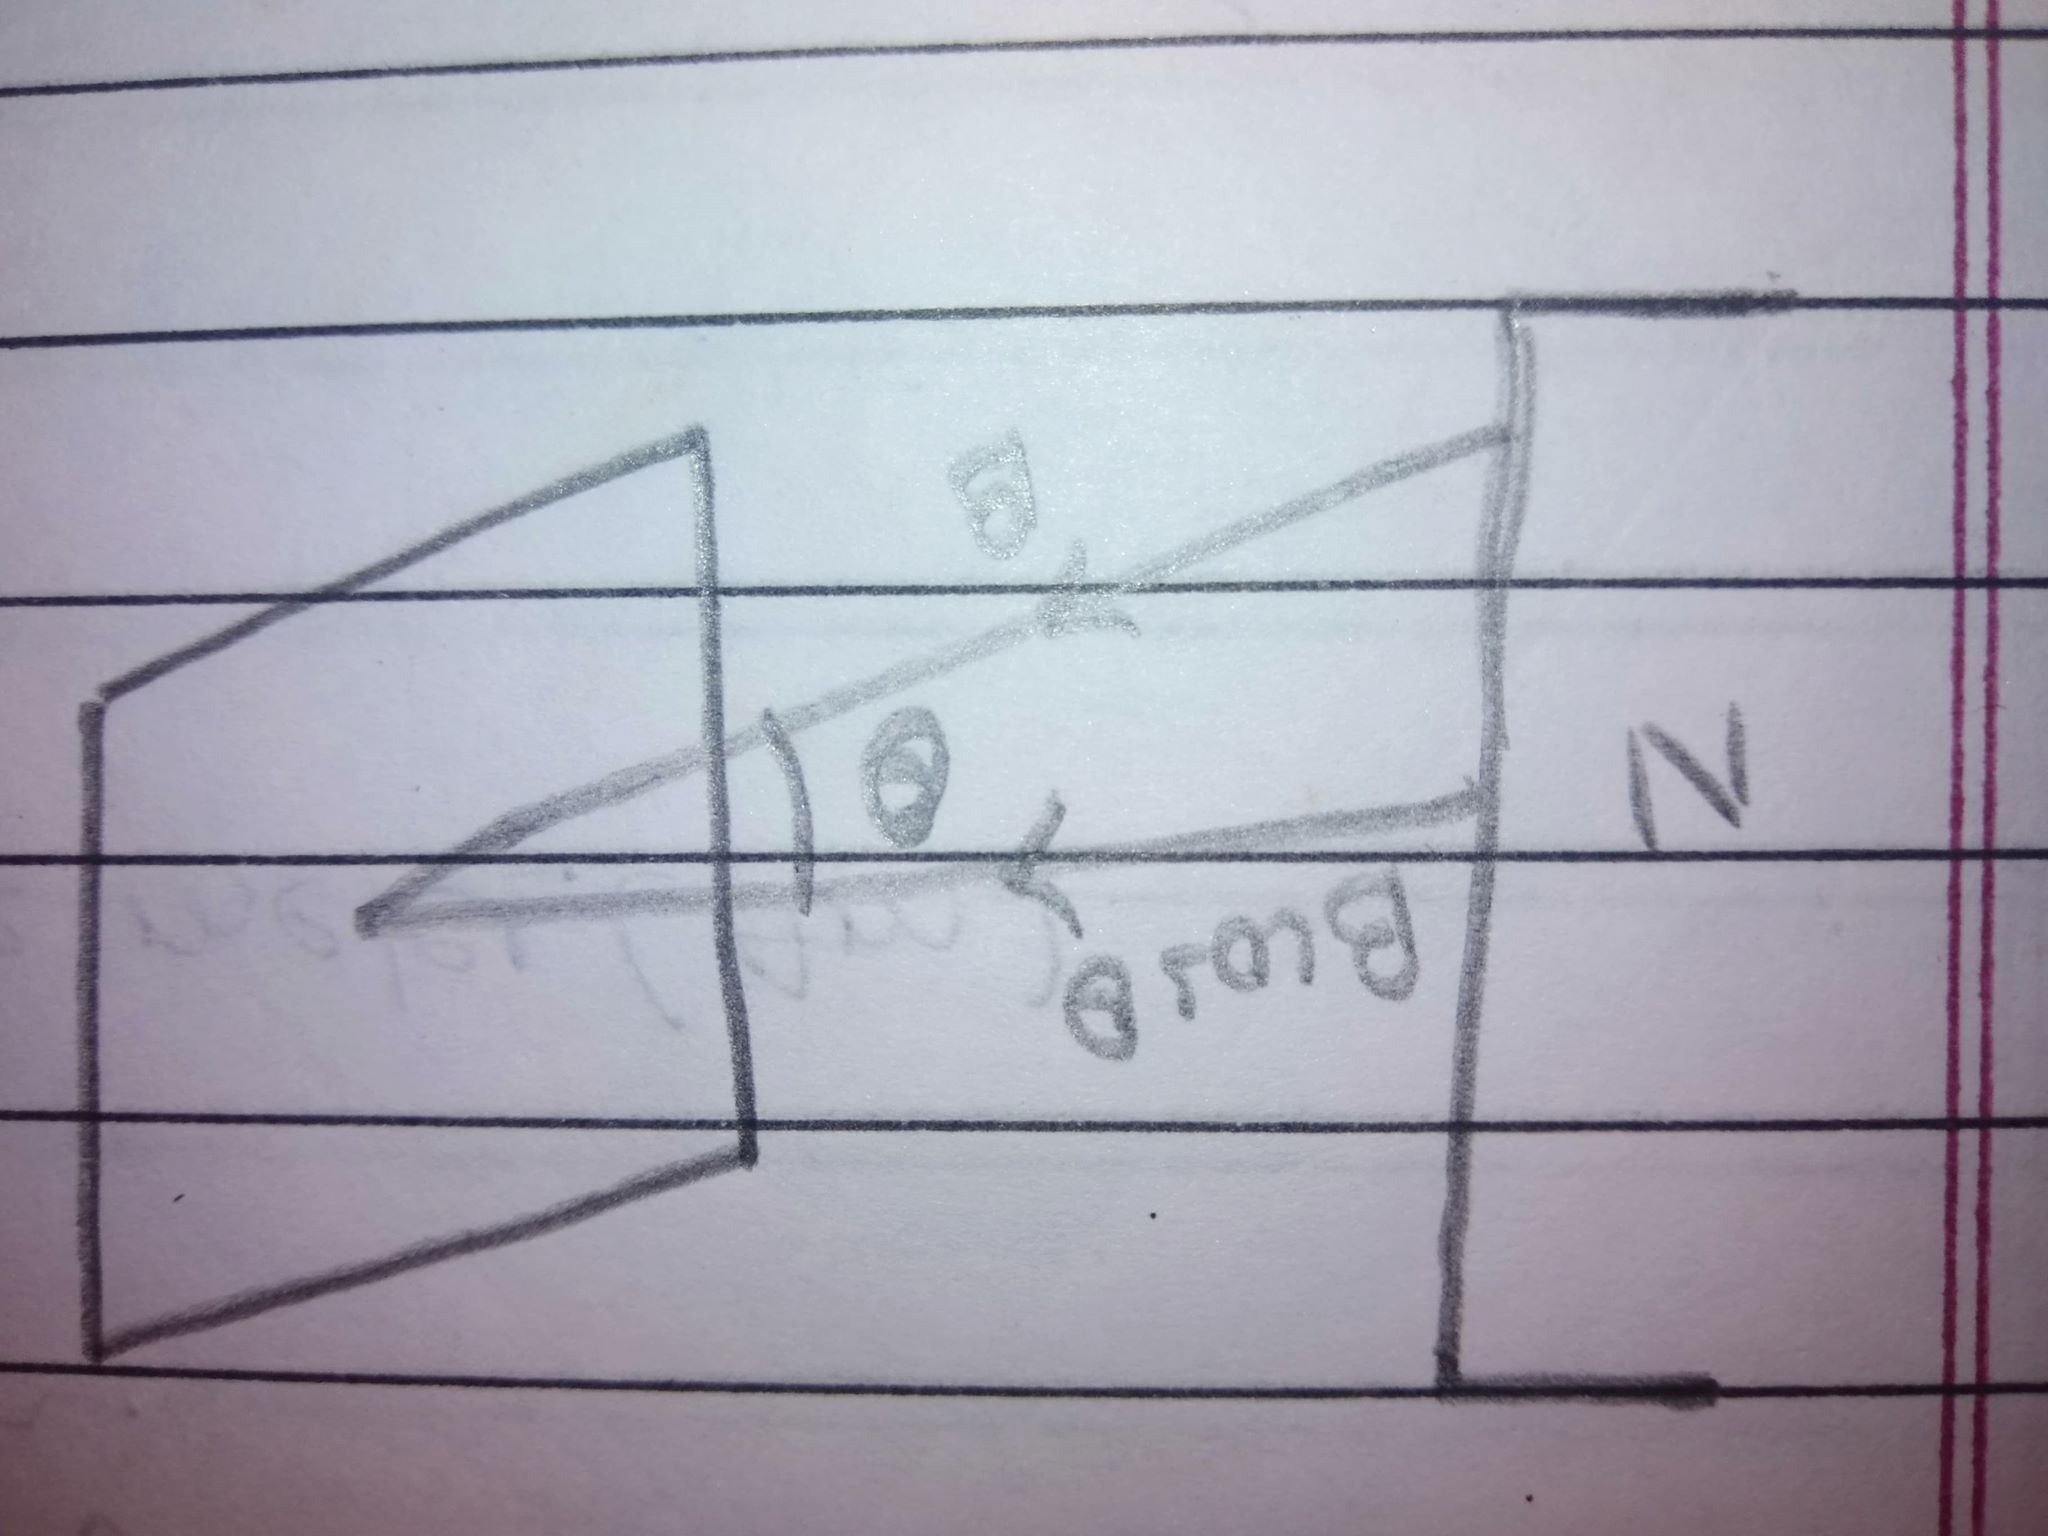 Bcosθ
N
θ
B